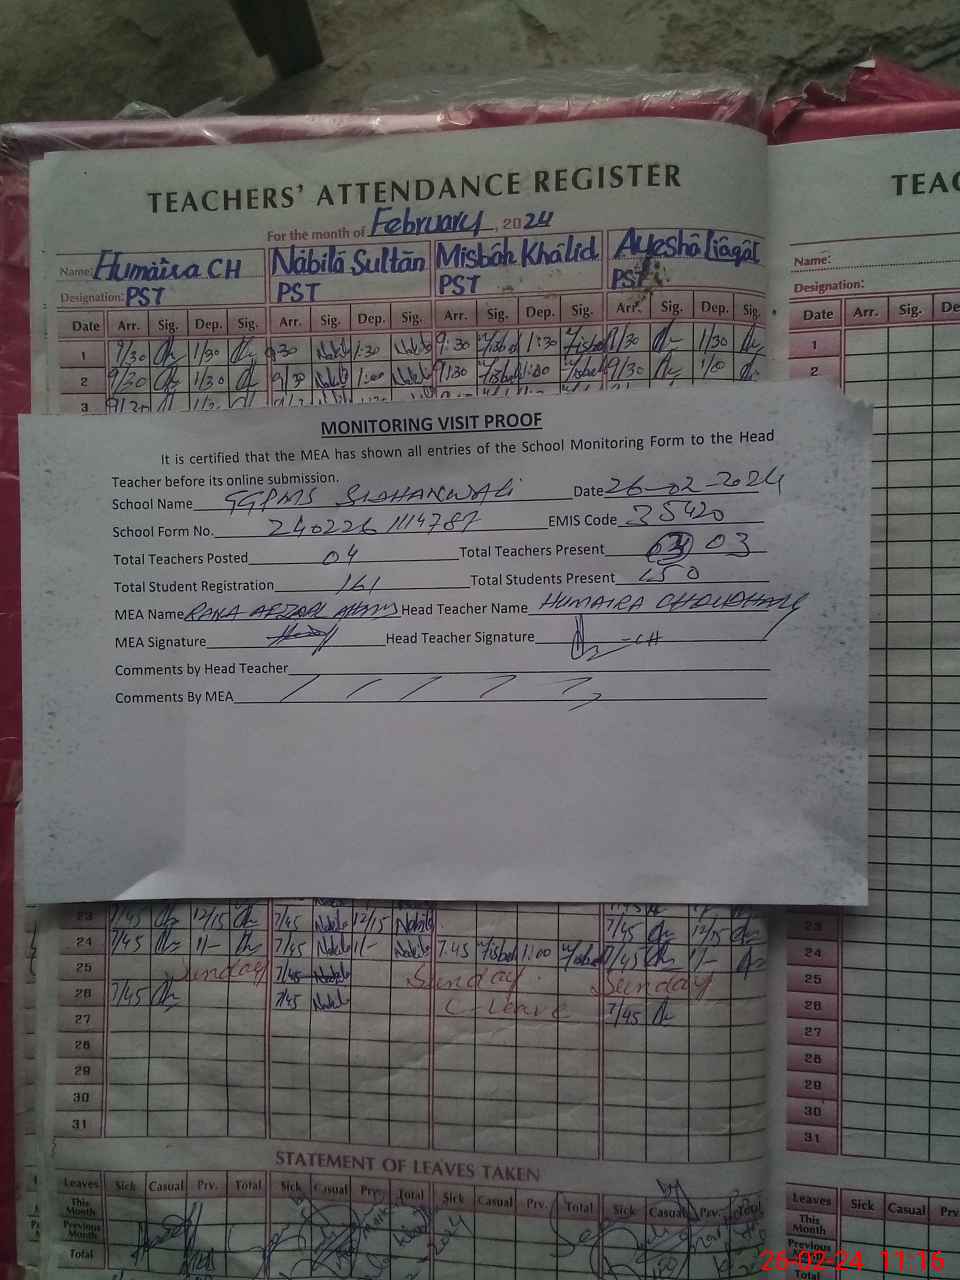 TEACHERS' ATTENDANCE REGISTER
For the month of February, 2024
Name: Humaira CH Nabila Sultan Misbah Khalid Ayesha Liaqat
Designation: PST PST PST PST
Date Arr. Sig. Dep. Sig. Arr. Sig. Dep. Sig. Arr. Sig. Dep. Sig. Arr. Sig. Dep. Sig.
1 9/30 1/30 9:30 Nabila 1:30 Nabila 9:30 Misbah 1:30 Misbah 9/30 1/30
2 9/30 1/30 9/30 Nabila 1:00 Nabila 9/30 Misbah 1:00 Misbah 9/30
3 9/30
MONITORING VISIT PROOF
It is certified that the MEA has shown all entries of the School Monitoring Form to the Head
Teacher before its online submission.
School Name GGPMS Date 26-02-2024
School Form No. EMIS Code 35420
Total Teachers Posted 04 Total Teachers Present 03
Total Student Registration 161 Total Students Present 150
MEA Name RANA Head Teacher Name HUMAIRA CHOUDHARY
MEA Signature Head Teacher Signature CH
Comments by Head Teacher
Comments By MEA
23 7/45 12/15 7/45 Nabila 12/15 Nabila 7/45 12/15
24 7/45 11/- 7/45 Nabila 11/- Nabila 7:45 Misbah 1:00 Misbah 7/45 11/-
25 Sunday 7/45 Nabila Sunday Sunday
26 7/45 7/45 Nabila C-Leave 7/45
27
28
29
30
31
STATEMENT OF LEAVES TAKEN
Leaves Sick Casual Prv. Total Sick Casual Prv. Total Sick Casual Prv. Total Sick Casual Prv. Total
This Month
Previous Month
Total
TEAC
Name:
Designation:
Date Arr. Sig. De
1
2
23
24
25
26
27
28
29
30
31
Leaves Sick Casual Prv.
This Month
Previous
Total
26-02-24 11:16